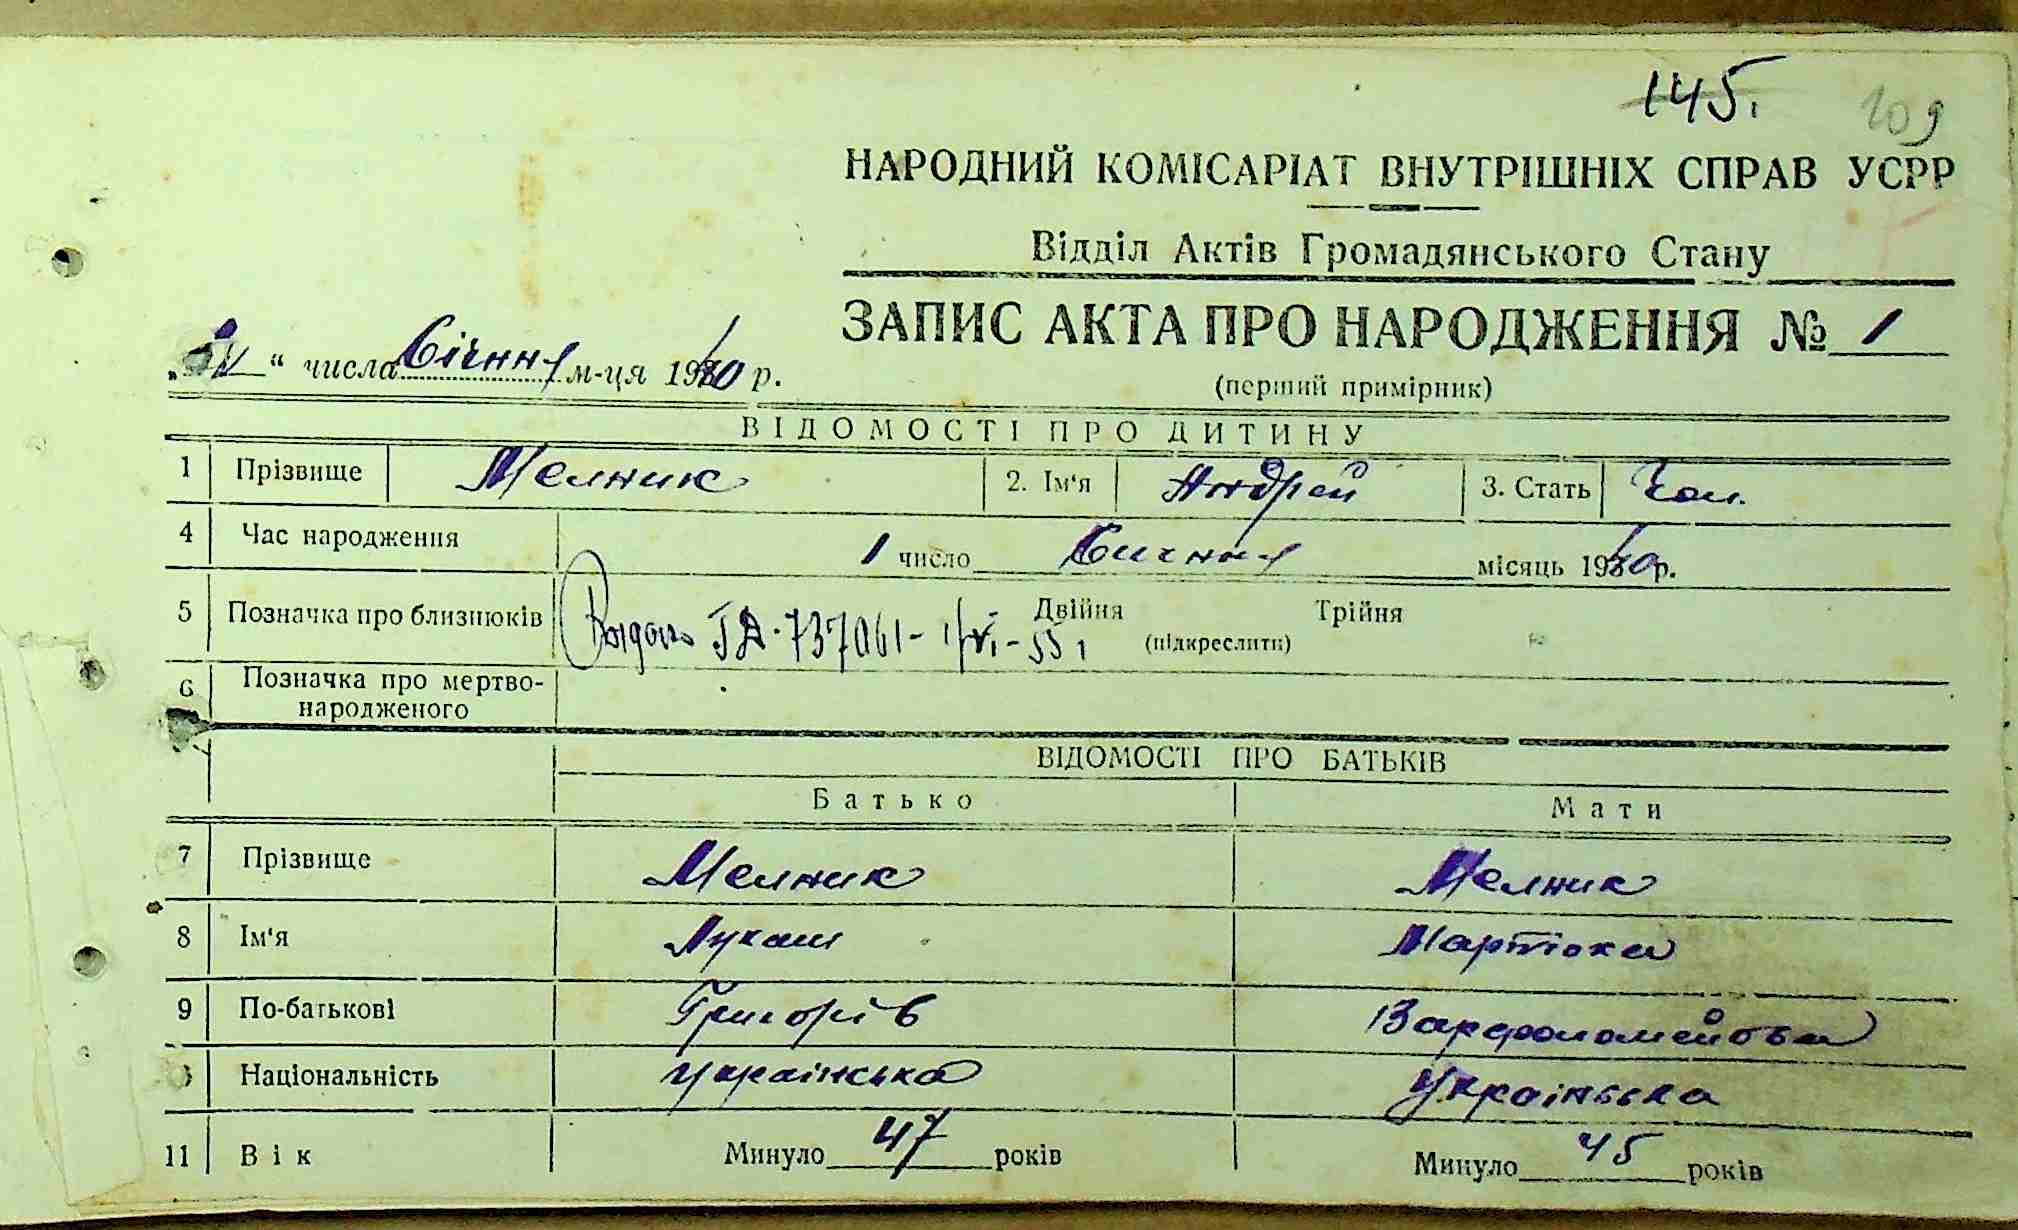 145.
109
НАРОДНИЙ КОМІСАРІАТ ВНУТРІШНІХ СПРАВ УСРР
Відділ Актів Громадянського Стану
ЗАПИС АКТА ПРО НАРОДЖЕННЯ № 1
" числа Січння м-ця 1940 р.
(перший примірник)
ВІДОМОСТІ ПРО ДИТИНУ
1 Прізвище Мелник 2. Ім'я Андрей 3. Стать Чол.
4 Час народження 1 число Сичння місяць 1940 р.
5 Позначка про близнюків Двійня Трійня
ГД-737061- (підкреслити)
6 Позначка про мертво-
народженого
ВІДОМОСТІ ПРО БАТЬКІВ
Батько Мати
7 Прізвище Мелник Мелник
8 Ім'я Лукаш
9 По-батькові Григорів Варфоломейова
Національність українська Українська
11 Вік Минуло 47 років Минуло 45 років